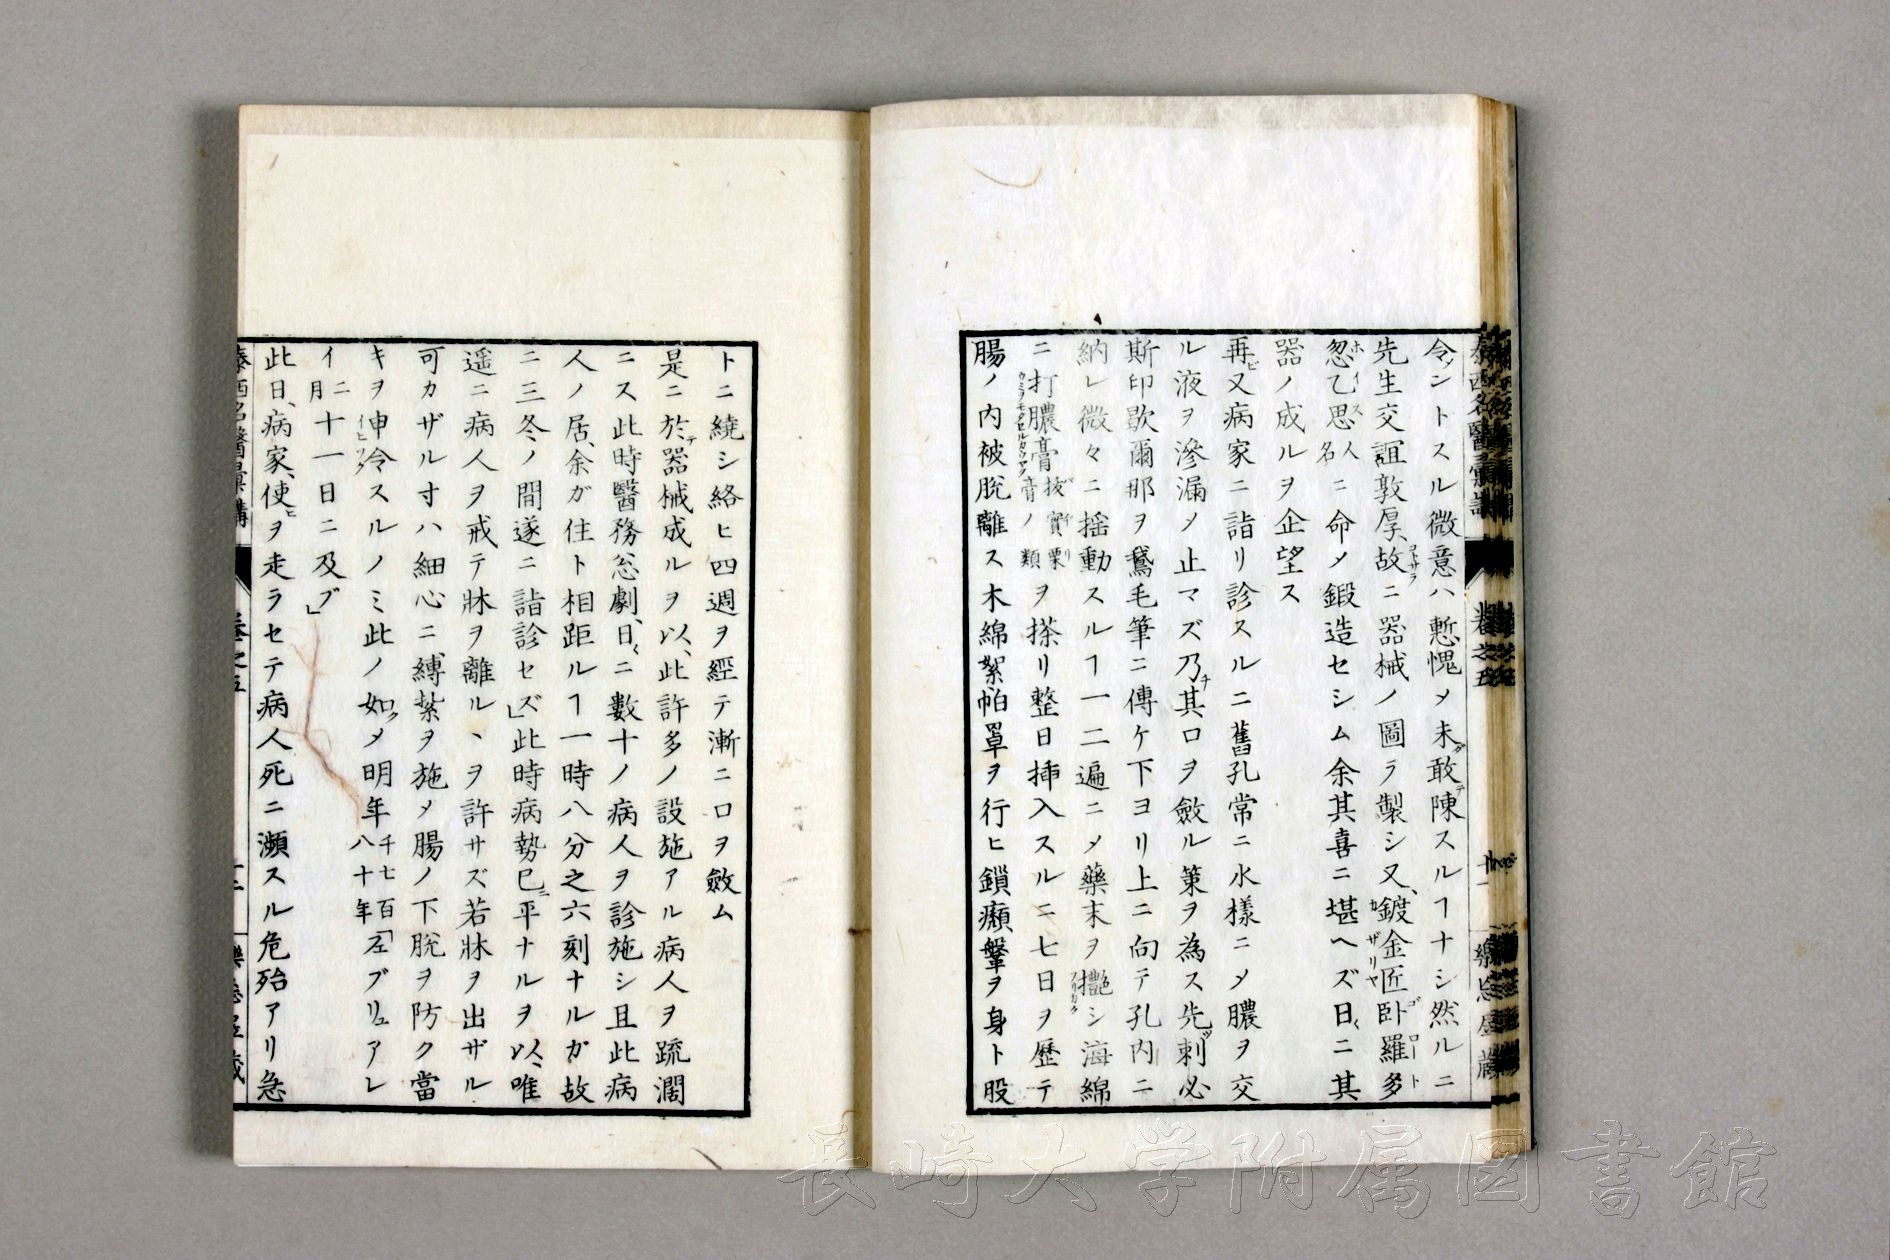 令ントスル微意ハ慙愧メ未敢陳スルヿナシ然ルニ
先生交誼敦厚故ニ器械ノ圖ヲ製シ又鍍金匠卧羅多
忽乙思人名ニ命メ鍛造セシム余其喜ニ堪ヘズ日ニ其
器ノ成ルヲ企望ス
再又病家ニ詣リ診スルニ舊孔常ニ水樣ニメ膿ヲ交
ル液ヲ滲漏メ止マズ乃其口ヲ斂ル策ヲ為ス先刺必
斯印歇爾那ヲ鵞毛筆ニ傳ケ下ヨリ上ニ向テ孔内ニ
納レ微々ニ揺動スルヿ一二遍ニメ藥末ヲ摻シ海綿
ニ打膿膏ヲ搽リ整日挿入スルニ七日ヲ歷テ
腸ノ内被脫離ス木綿絮帕罩ヲ行ヒ鎖癩鞶ヲ身ト股
トニ繞シ絡ヒ四週ヲ經テ漸ニ口ヲ斂ム
是ニ於テ器械成ルヲ以、此許多ノ設施アル病人ヲ疏濶
ニス此時醫務怱劇、日ニ數十ノ病人ヲ診施シ且此病
人ノ居、余ガ住ト相距ルヿ一時八分之六刻ナルガ故
ニ三冬ノ間遂ニ詣診セズ」此時病勢已ニ平ナルヲ以、唯
遥ニ病人ヲ戒テ牀ヲ離ルヽヲ許サズ若牀ヲ出ザル
可カザル寸ハ細心ニ縛紮ヲ施メ腸ノ下脫ヲ防ク當
キヲ申令スルノミ此ノ如クメ明年千七百八十年「左ブリュアレ
イ二月十一日ニ及ブ」
此日、病家、使ヲ走ラセテ病人死ニ瀕スル危殆アリ急
泰西名醫彙講
卷之五